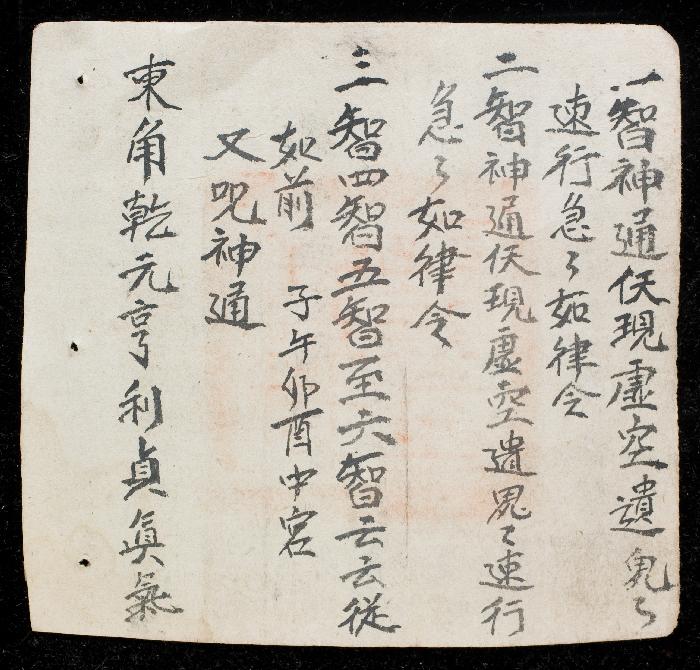 一智神通仸現虛空遺鬼〻
速行急〻如律令
二智神通仸現虛空遺鬼〻速行
急〻如律令
三智四智五智至六智云云從
如前 子午卯酉中宮
又呪神通
東角乾元亨利貞眞氣